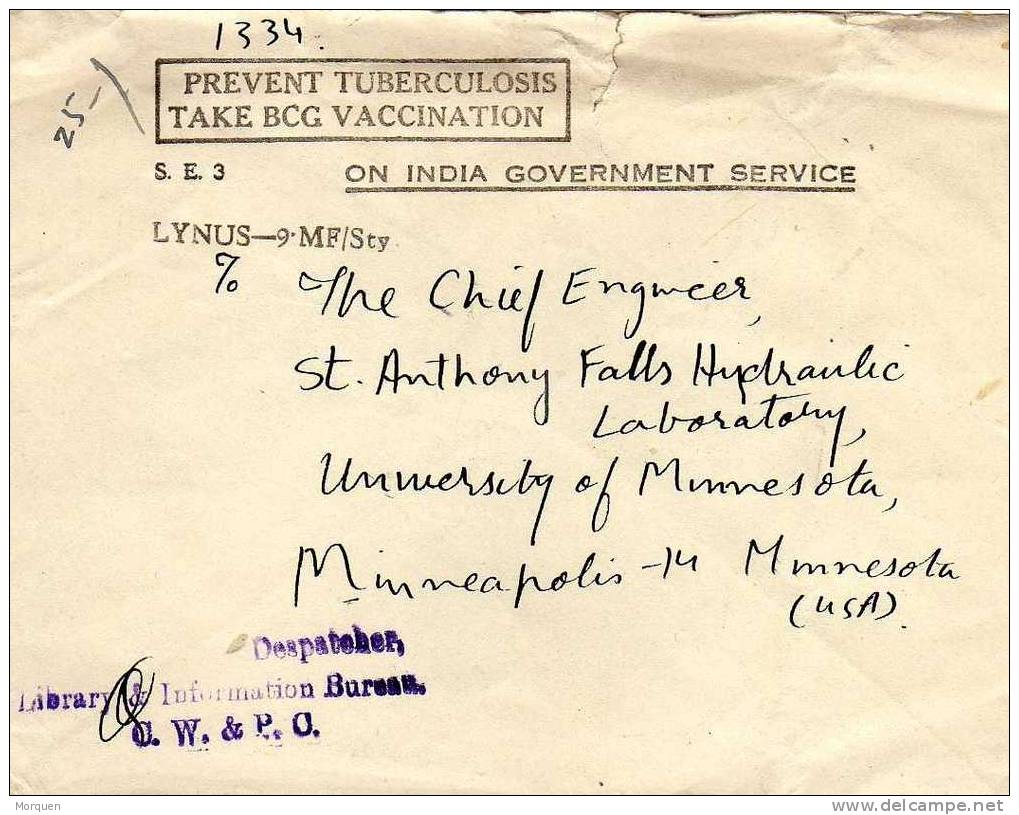 1334.
25-/
PREVENT TUBERCULOSIS
TAKE BCG VACCINATION
S. E. 3 ON INDIA GOVERNMENT SERVICE
LYNUS—9·MF/Sty.
To
The Chief Engineer,
St. Anthony Falls Hydraulic
Laboratory,
University of Minnesota,
Minneapolis-14 Minnesota
(USA).
Despatcher,
Library & Information Bureau.
C. W. & P. C.
Morquen
delcampe.net